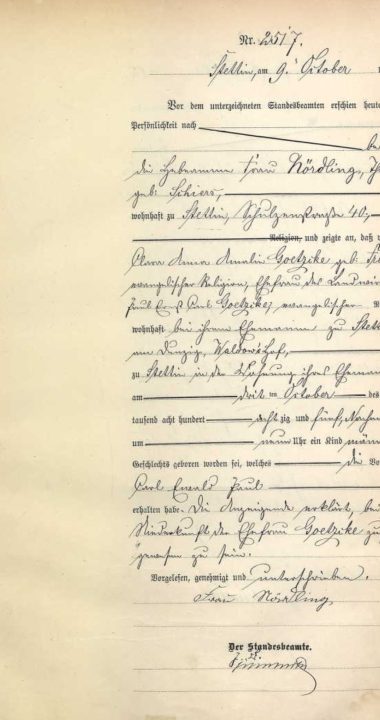 Nr. 2517.
Stettin, am 9. October
Vor dem unterzeichneten Standesbeamten erschien heute
Persönlichkeit nach
be
die Hebeamme Frau Nördling, Th
geb: Schiers,
wohnhaft zu Stettin, Schulzenstraße 40,
Religion, und zeigte an, daß
Clara Anna Amalie Goetzke geb:
evangelischer Religion, Ehefrau des Landwir
Paul Ernst Carl Goetzke, evangelischer R
wohnhaft bei ihrem Ehemanne zu Stettin
am Dunzig,
zu Stettin in der Wohnung ihres Eheman
am drit ten October des
tausend acht hundert acht zig und fünf, Nachm
um neun Uhr ein Kind männ
Geschlechts geboren worden sei, welches die Vo
Carl Ewald Paul
erhalten habe. Die Anzeigende erklärt, bei
Niederkunft der Ehefrau Goetzke zu
gewesen zu sein.
Vorgelesen, genehmigt und unterschrieben.
Frau Nördling
Der Standesbeamte.